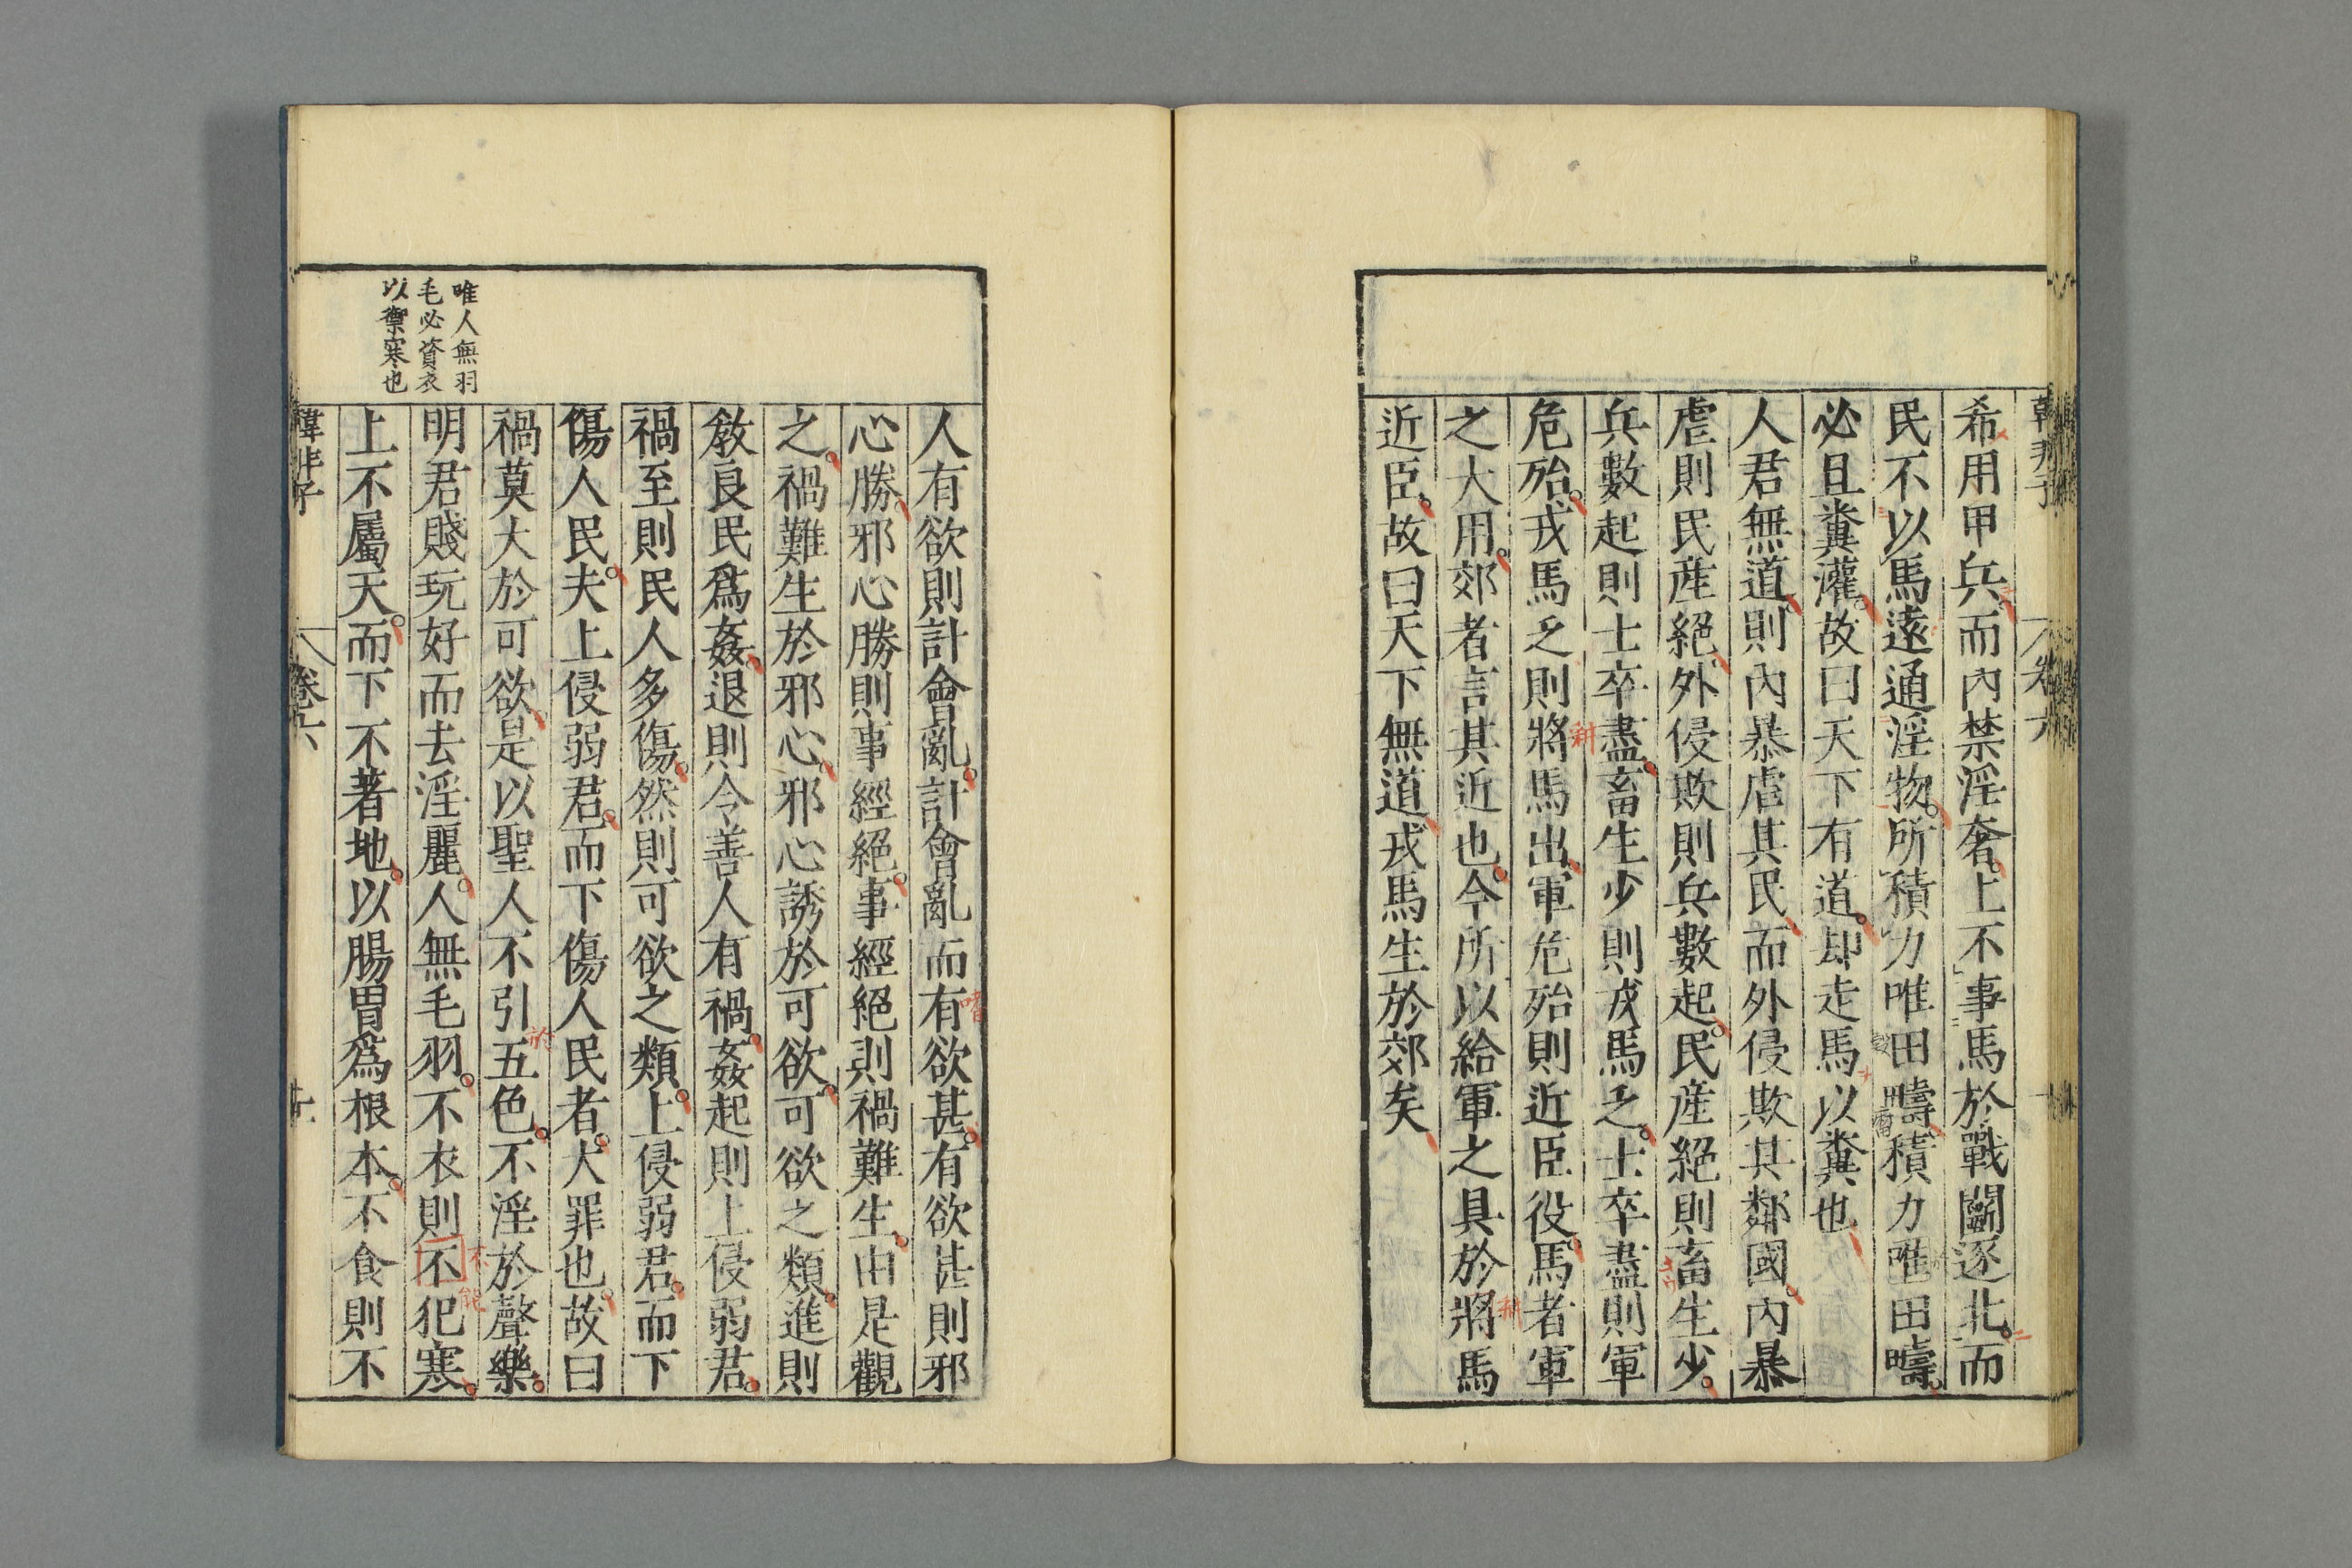 韓非子
卷六
希用甲兵而內禁淫奢上不事馬於戰鬭逐北而
民不以馬遠通淫物所積力唯田疇積力唯田疇
必且糞灌故曰天下有道却走馬以糞也
人君無道則內暴虐其民而外侵欺其鄰國內暴
虐則民産絕外侵欺則兵數起民産絕則畜生少
兵數起則士卒盡畜生少則戎馬乏士卒盡則軍
危殆戎馬乏則將馬出軍危殆則近臣役馬者軍
之大用郊者言其近也今所以給軍之具於將馬
近臣故曰天下無道戎馬生於郊矣
人有欲則計會亂計會亂而有欲甚有欲甚則邪
心勝邪心勝則事經絕事經絕則禍難生由是觀
之禍難生於邪心邪心誘於可欲可欲之類進則
敎良民爲姦退則令善人有禍姦起則上侵弱君
禍至則民人多傷然則可欲之類上侵弱君而下
傷人民夫上侵弱君而下傷人民者大罪也故曰
禍莫大於可欲是以聖人不引五色不淫於聲樂
明君賤玩好而去淫麗人無毛羽不衣則不犯寒
上不屬天而下不著地以腸胃爲根本不食則不
唯人無羽
毛必資衣
以禦寒也
韓非子
卷六